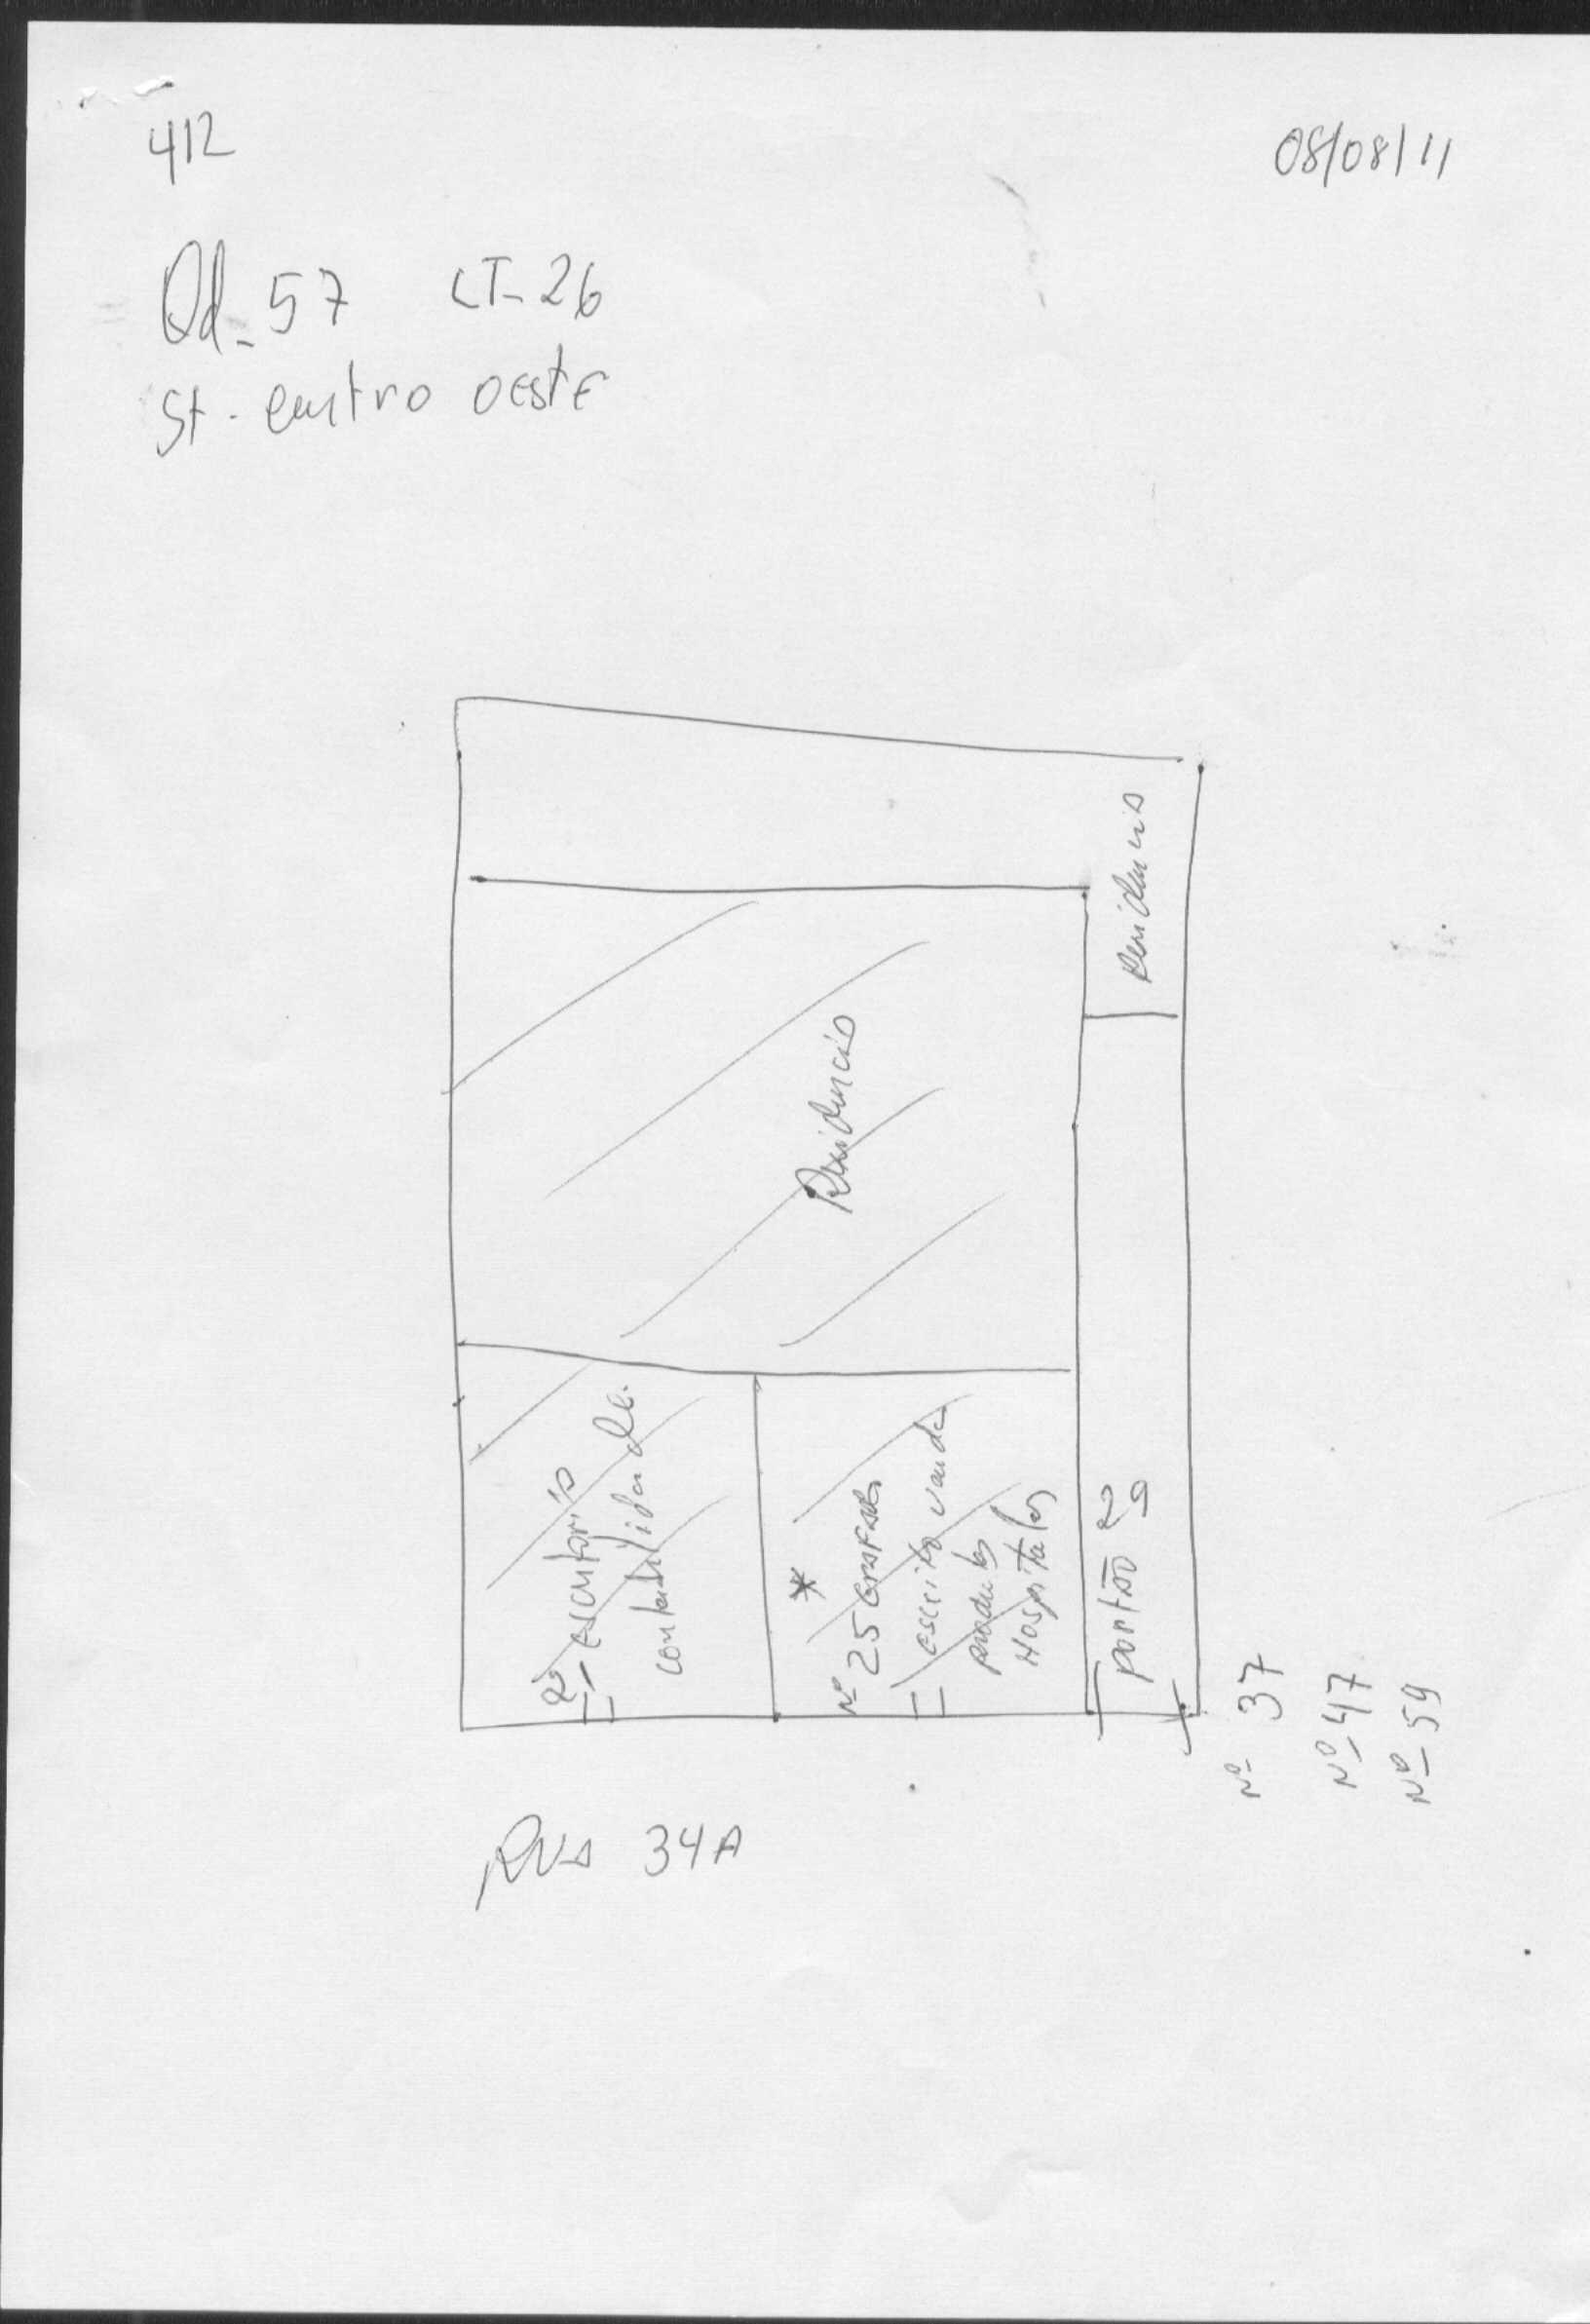 412
08/08/11
Qd_57 LT-26
St. centro oeste
Residencia
Residencia
escritorio
contabilidade.
*
Nº 25
escrito venda
produtos
Hospitales
portão
Nº 37
Nº 47
Nº 59
Rua 34A